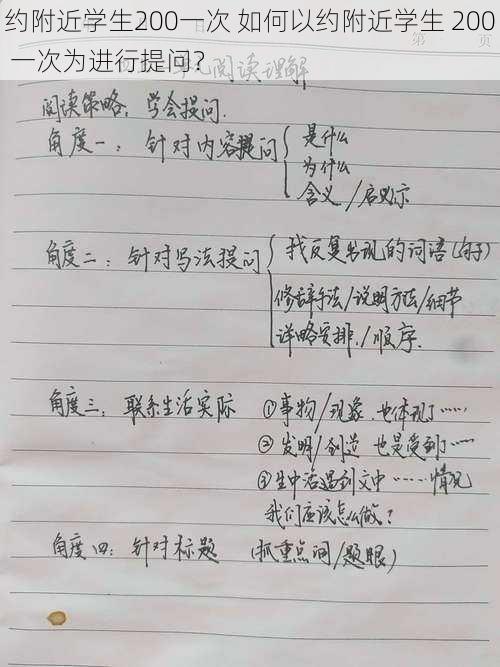 约附近学生200一次 如何以约附近学生 200
一次为进行提问？
第 页
阅读理解
阅读策略：学会提问.
角度一：针对内容提问
是什么
为什么
含义/启示
角度二：针对写法提问
找反复出现的词语(句子)
修辞手法/说明方法/细节
详略安排./顺序.
角度三：联系生活实际
①事物/现象.也体现了……
②发明/创造 也是受到……
③生中活遇到文中……情况
我们应该怎么做？
角度四：针对标题 (抓重点词/题眼)